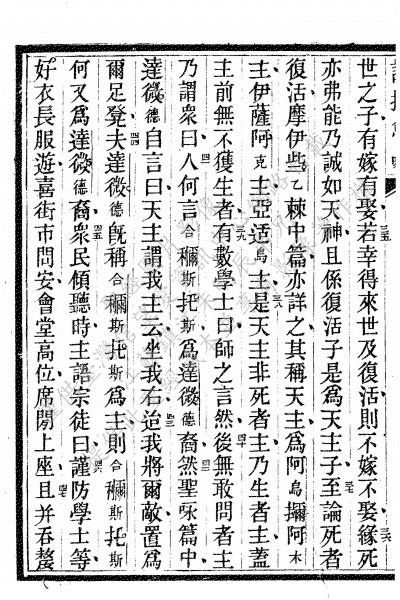 世之子有嫁有娶三五若幸得來世及復活則不嫁不娶三六緣死
亦弗能乃誠如天神且係復活子是爲天主子三七至論死者
復活摩伊些乙棘中篇亦詳之其稱天主爲阿烏擟阿木
主伊薩阿克主亞适烏主三八是天主非死者主乃生者主蓋
主前無不獲生者三九有數學士曰師之言然四十後無敢問者四一主
乃謂衆曰人何言合穪斯托斯爲達微德裔四二然聖咏篇中
達微德自言曰天主謂我主云坐我右四三迨我將爾敵置爲
爾足凳四四夫達微德旣稱合穪斯托斯爲主則合穪斯托斯
何又爲達微德裔四五衆民傾聽時主語宗徒曰四六謹防學士等
好衣長服遊喜街市問安會堂高位席閒上座四七且并吞嫠